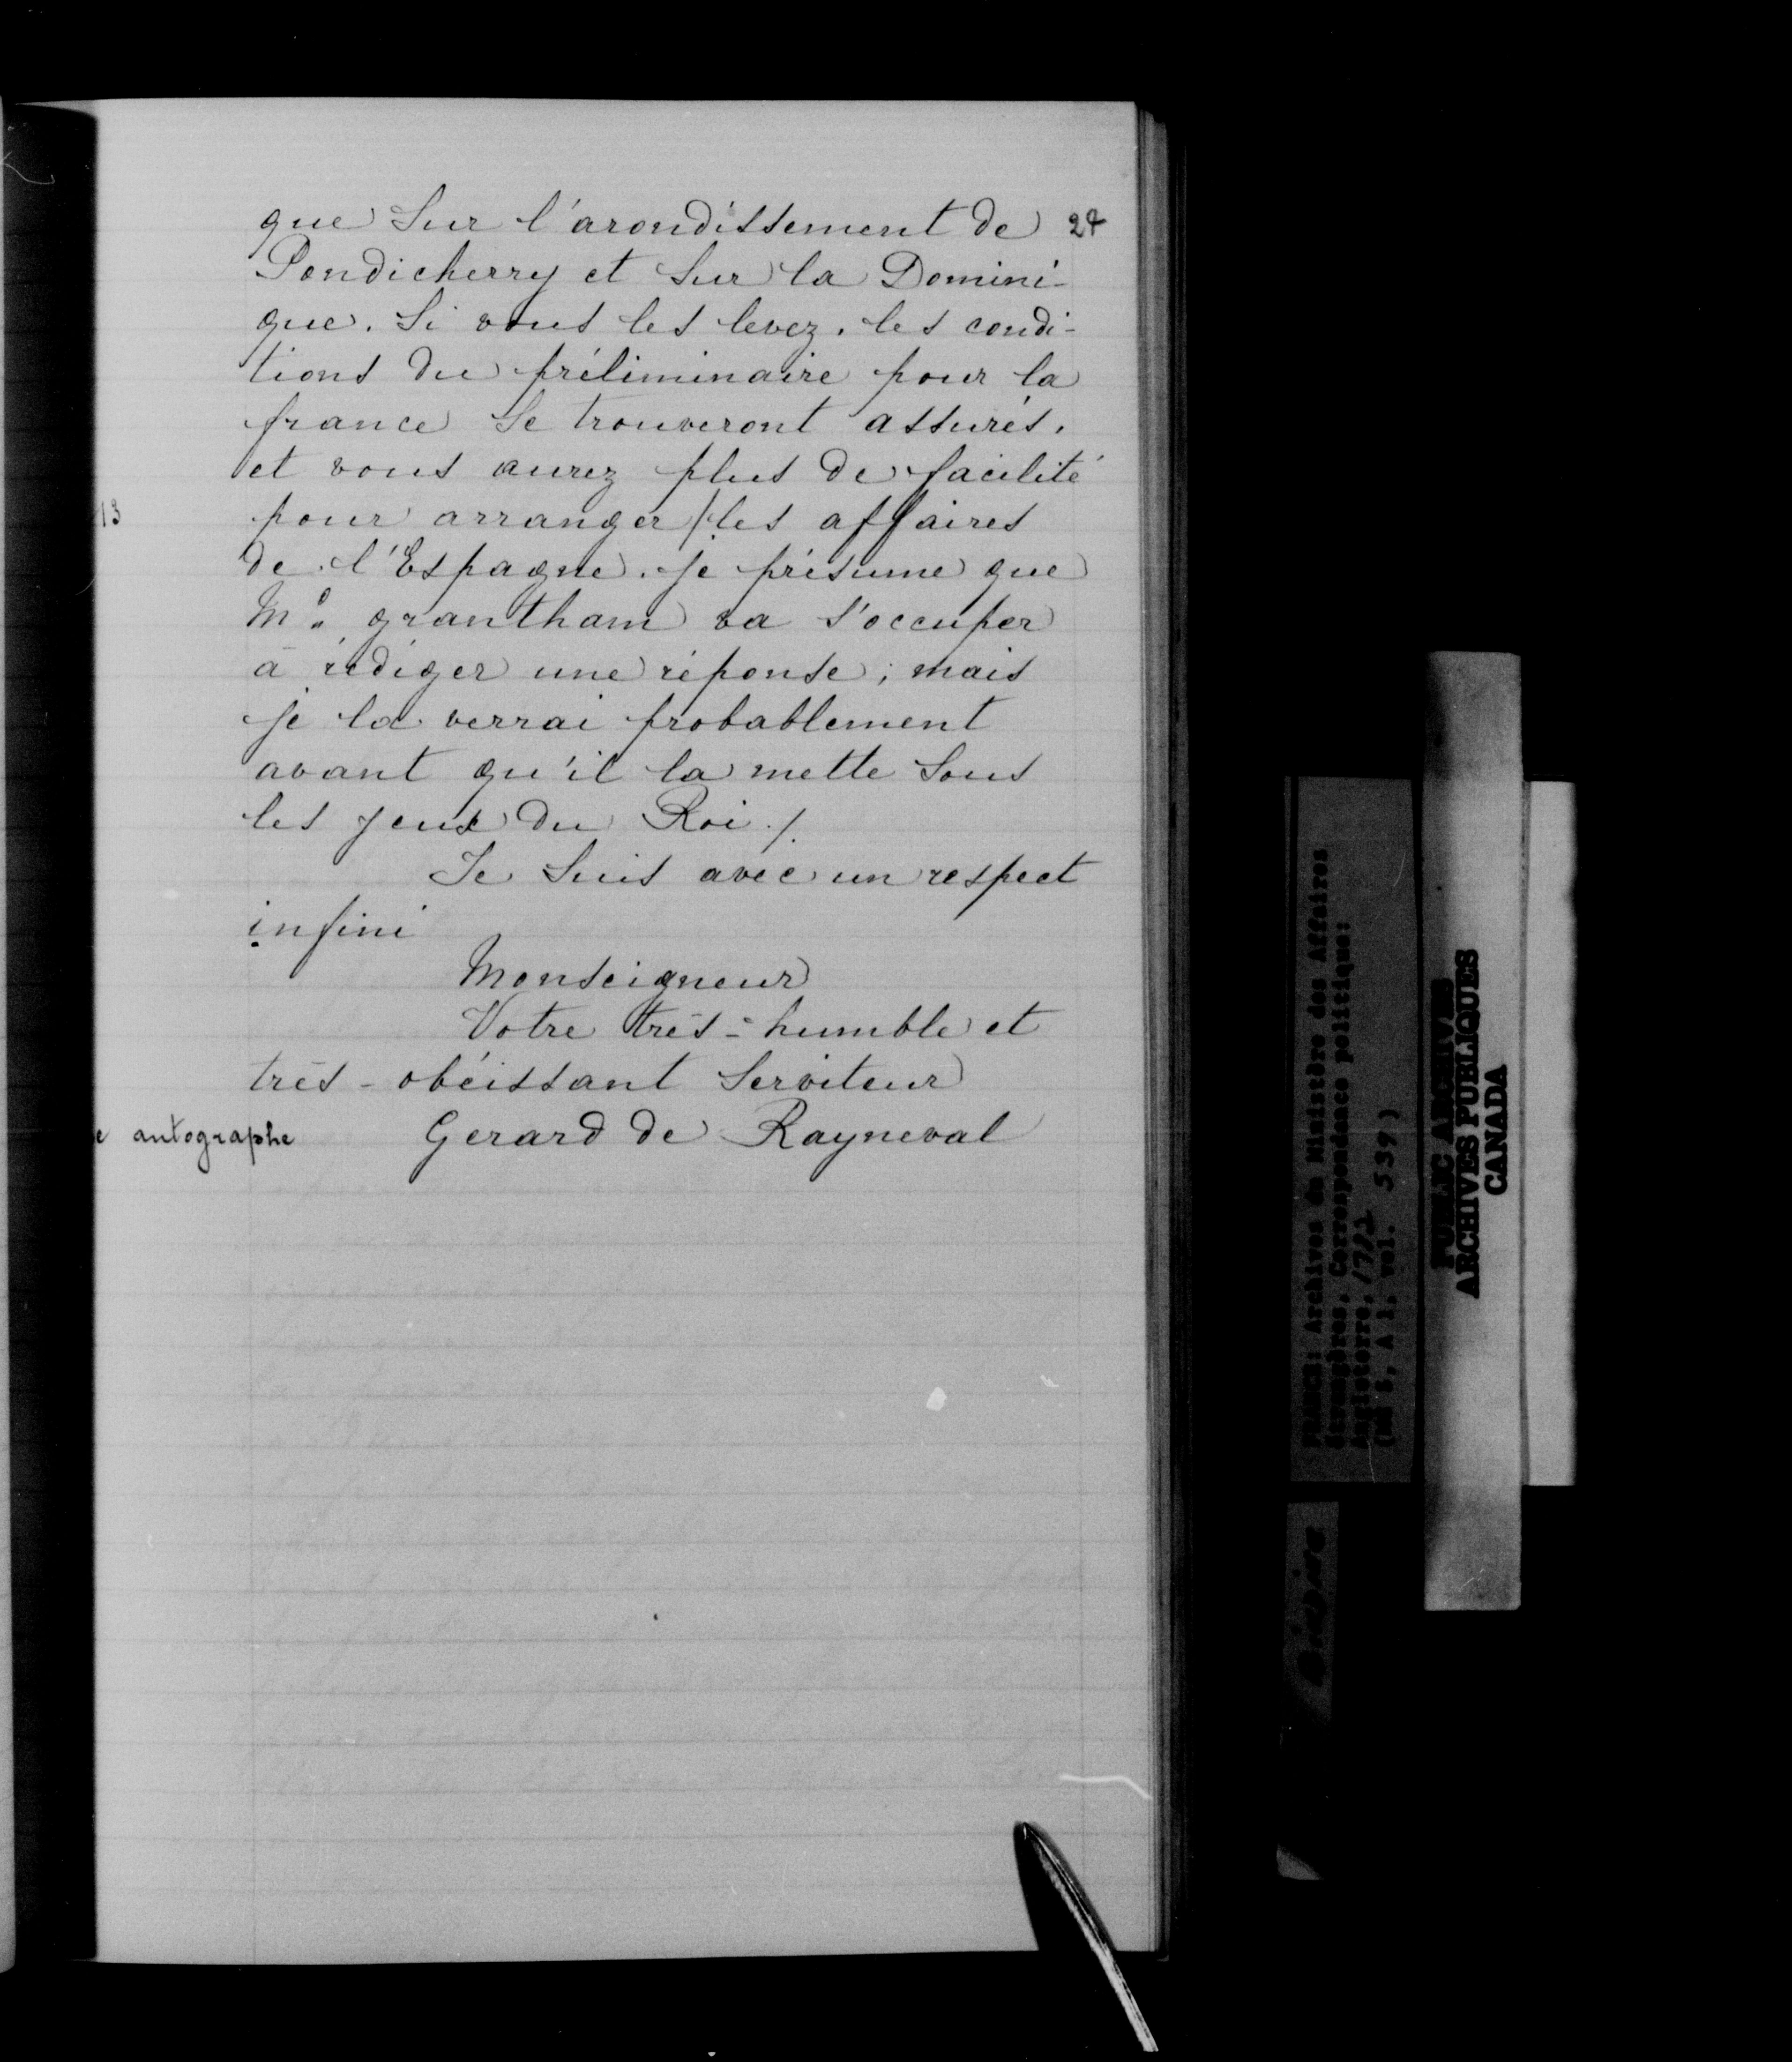 que sur l'arondissement de 24
Pondicherry et sur la Domini-
que. Si vous les levez, les condi-
tions du préliminaire pour la
france se trouveront assurés,
et vous aurez plus de facilité
13 pour arranger / les affaires
de l'Espagne. Je présume que
Md. grantham va s'occuper
à rédiger une réponse; mais
je la verrai probablement
avant qu'il la mette sous
les yeux du Roi ./.
Je suis avec un respect
infini
Monseigneur
Votre très-humble et
très-obéissant serviteur
e autographe Gerard de Rayneval
FRANCE: Archives du Ministère des Affaires
étrangères, Correspondance politique:
Angleterre, 1782
(MG 5, A 1, vol. 539)
PUBLIC ARCHIVES
ARCHIVES PUBLIQUES
CANADA